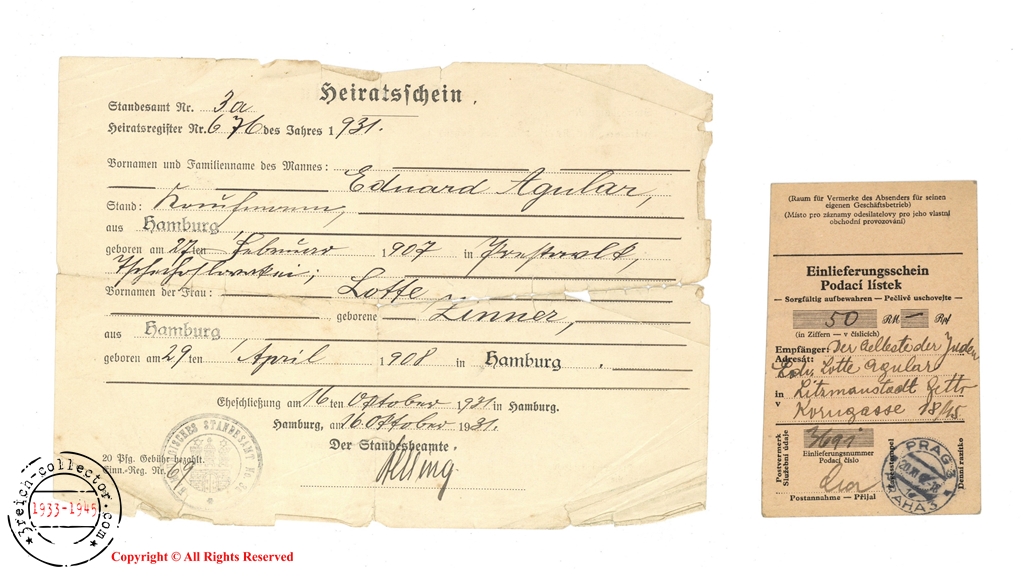 Heiratsschein.
Standesamt Nr. 3a
Heiratsregister Nr. 676 des Jahres 1931.
Vornamen und Familienname des Mannes:
Eduard Agular,
Stand: Kaufmann,
aus Hamburg
geboren am 27ten Februar 1907 in
Tschechoslowakei;
Vornamen der Frau: Lotte
geborene Zinner,
aus Hamburg
geboren am 29ten April 1908 in Hamburg.
Eheschließung am 16ten Oktober 1931 in Hamburg.
Hamburg, am 16 Oktober 1931.
Der Standesbeamte:
20 Pfg. Gebühr bezahlt.
Einn.-Reg. Nr. 69
(Raum für Vermerke des Absenders für seinen
eigenen Geschäftsbetrieb)
(Místo pro záznamy odesilatelovy pro jeho vlastní
obchodní provozování)
Einlieferungsschein
Podací lístek
— Sorgfältig aufbewahren — Pečlivě uschovejte —
50 RM — Rpf
(in Ziffern — v číslicích)
Empfänger: Der Aelteste der Juden
Adresát: Lotte Agular
in Litzmanstadt Getto
v Korngasse 18/45
Postvermerk
Služební údaje
Einlieferungsnummer
Podací číslo
Tagesstempel
Denní razítko
PRAG 3
PRAHA 3
Postannahme — Přijal
3reich-collector.com
1933-1945
Copyright © All Rights Reserved